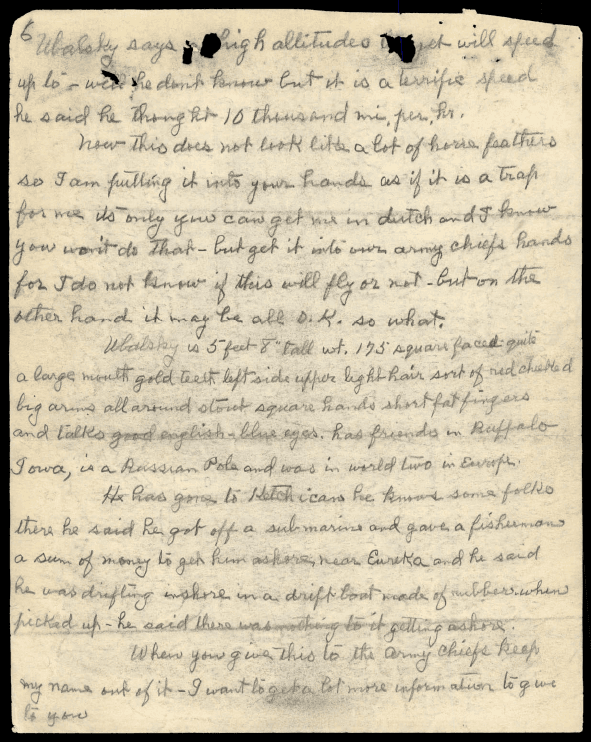 6
Ubalsky says high allitudes jet will speed
up to - well he dont know but it is a terrific speed
he said he thought 10 thousand mi, per, hr.
Now this does not look like a lot of horse feathers
so I am putting it into your hands as if it is a trap
for me its only you can get me in dutch and I know
you wont do that - but get it into our army chiefs hands
for I do not know if this will fly or not - but on the
other hand it may be all O.K. so what.
Ubalsky is 5 feet 8" tall wt. 175 square faced quite
a large mouth gold teeth left side upper light hair sort of red cheeked
big arms all around stout square hands short fat fingers
and talks good english - blue eyes. has friends in Buffalo
Iowa, is a Russian Pole and was in world two in Europe.
He has gone to Ketchican he knows some folks
there he said he got off a submarine and gave a fisherman
a sum of money to get him ashore, near Eureka and he said
he was drifting inshore in a drift boat made of rubber when
picked up - he said there was nothing to it getting ashore.
When you give this to the army chiefs keep
my name out of it - I want to get a lot more information to give
to you